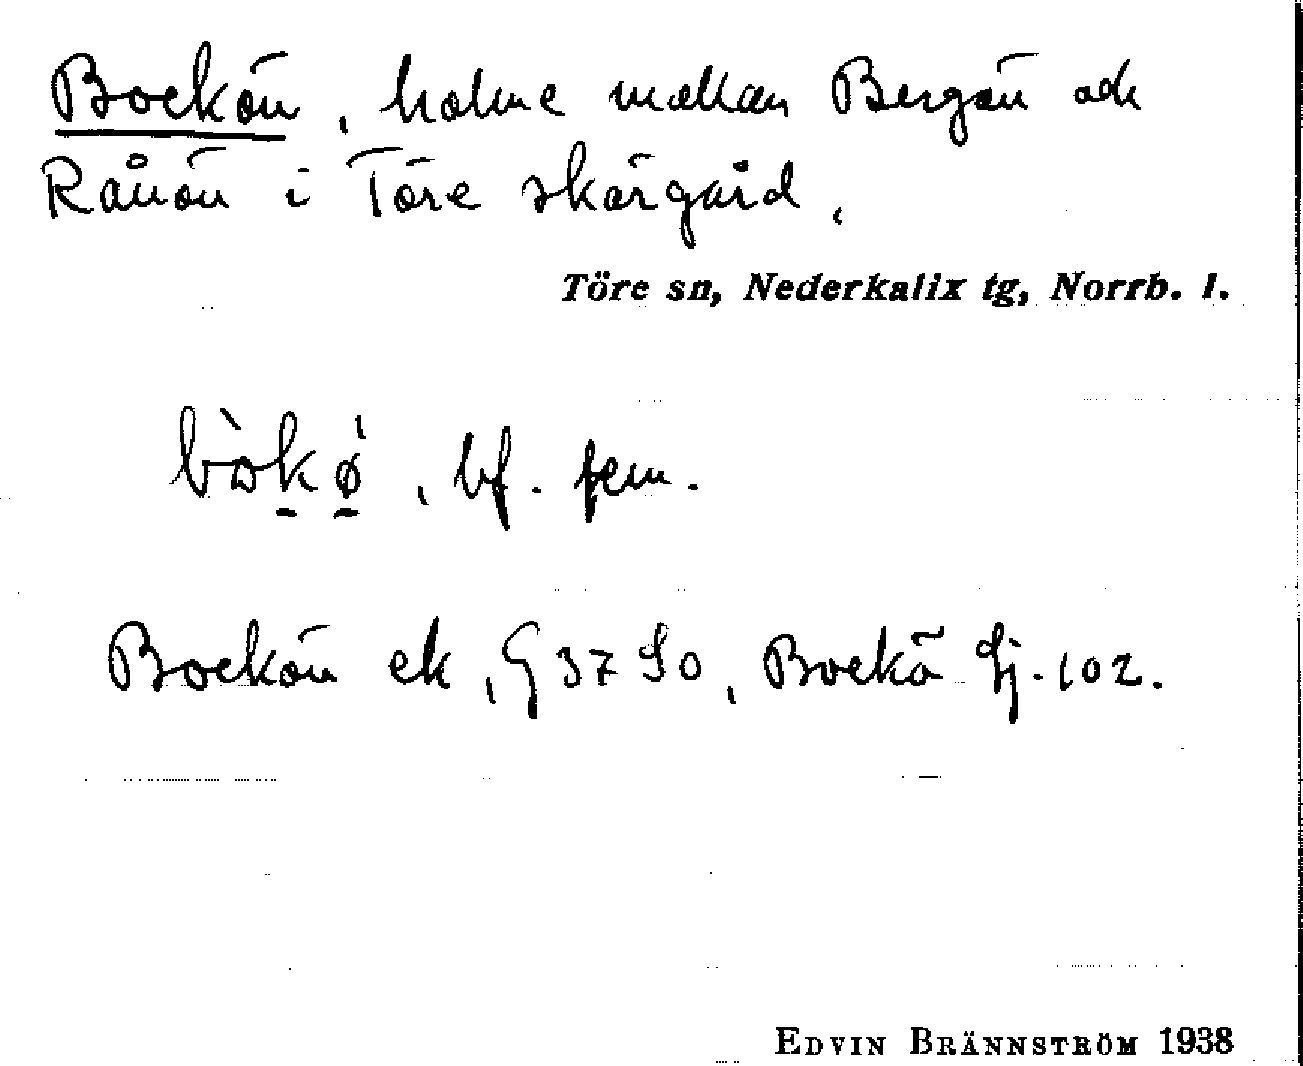 Bockön, holme mellan Bergön och
Rånön i Töre skärgård.
Töre sn, Nederkalix tg, Norrb. l.
bf. fem.
Bockön ek, G 37 90, Bockö Gj. 102.
EDVIN BRÄNNSTRÖM 1938